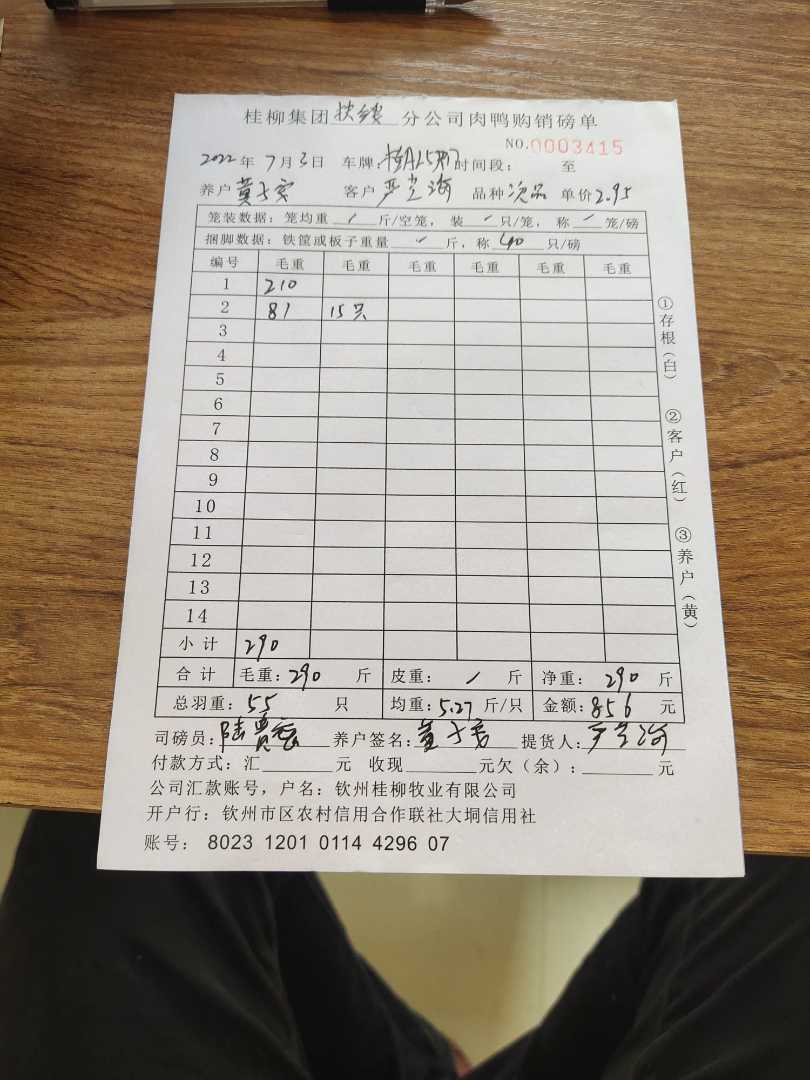 桂柳集团扶绥分公司肉鸭购销磅单
NO.0003415
2022年7月3日 车牌: 时间段: 至
养户 黄 客户 严 品种 次品 单价2.95
笼装数据: 笼均重 / 斤/空笼, 装 / 只/笼, 称 / 笼/磅
捆脚数据: 铁筐或板子重量 / 斤, 称 40 只/磅
编号 毛重 毛重 毛重 毛重 毛重 毛重
1 210
2 81 15只
3
4
5
6
7
8
9
10
11
12
13
14
小计 290
合计 毛重: 290 斤 皮重: / 斤 净重: 290 斤
总羽重: 55 只 均重: 5.27 斤/只 金额: 856 元
司磅员: 陆贵 养户签名: 黄 提货人:
付款方式: 汇 元 收现 元欠(余): 元
公司汇款账号, 户名: 钦州桂柳牧业有限公司
开户行: 钦州市区农村信用合作联社大垌信用社
账号: 8023 1201 0114 4296 07
①存根(白)
②客户(红)
③养户(黄)